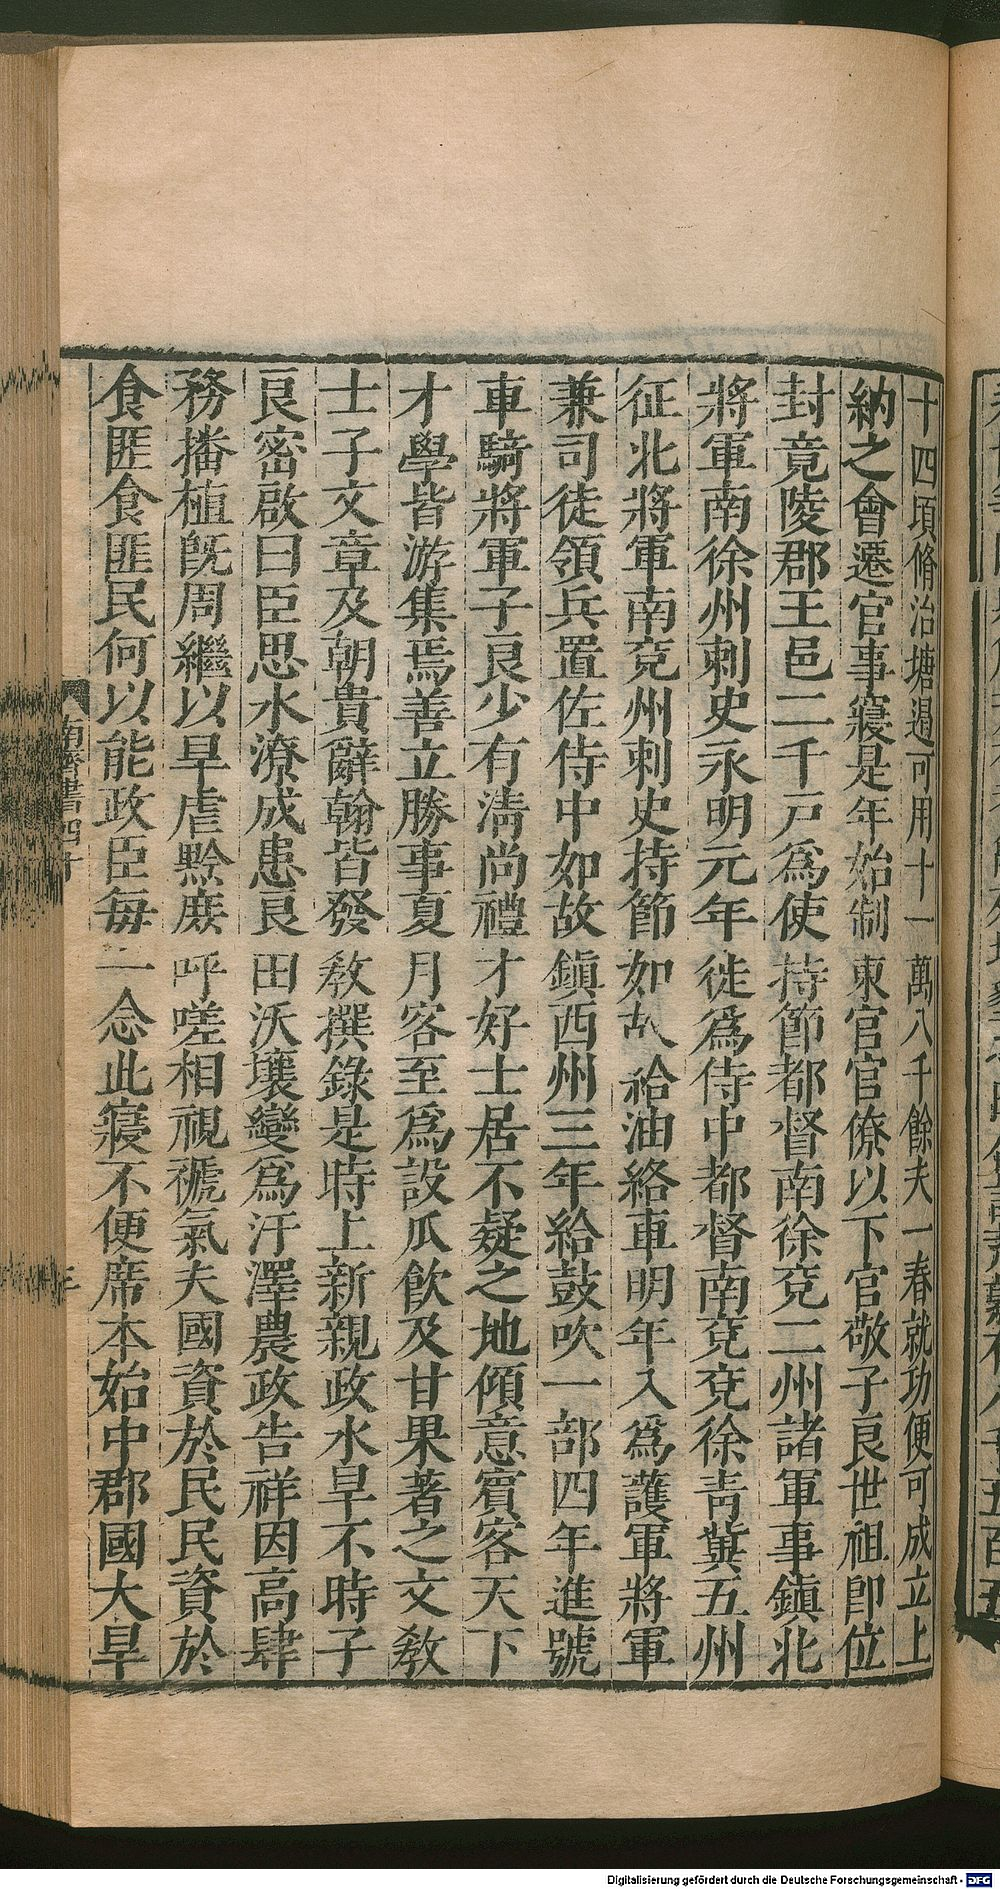 十四頃脩治塘遏可用十一萬八千餘夫一春就功便可成立上
納之會遷官事寢是年始制東宮官僚以下官敬子良世祖即位
封竟陵郡王邑二千戸爲使持節都督南徐兗二州諸軍事鎭北
將軍南徐州刺史永明元年徙爲侍中都督南兗兗徐靑冀五州
征北將軍南兗州刺史持節如故給油絡車明年入爲護軍將軍
兼司徒領兵置佐侍中如故鎭西州三年給鼓吹一部四年進號
車騎將軍子良少有淸尚禮才好士居不疑之地傾意賓客天下
才學皆游集焉善立勝事夏月客至爲設瓜飮及甘果著之文敎
士子文章及朝貴辭翰皆發敎撰錄是時上新親政水旱不時子
良密啟曰臣思水潦成患良田沃壤變爲汙澤農政告祥因高肆
務播植旣周繼以旱虐黔庶呼嗟相視褫氣夫國資於民民資於
食匪食匪民何以能政臣每一念此寢不便席本始中郡國大旱
南齊書四十
Digitalisierung gefördert durch die Deutsche Forschungsgemeinschaft - DFG